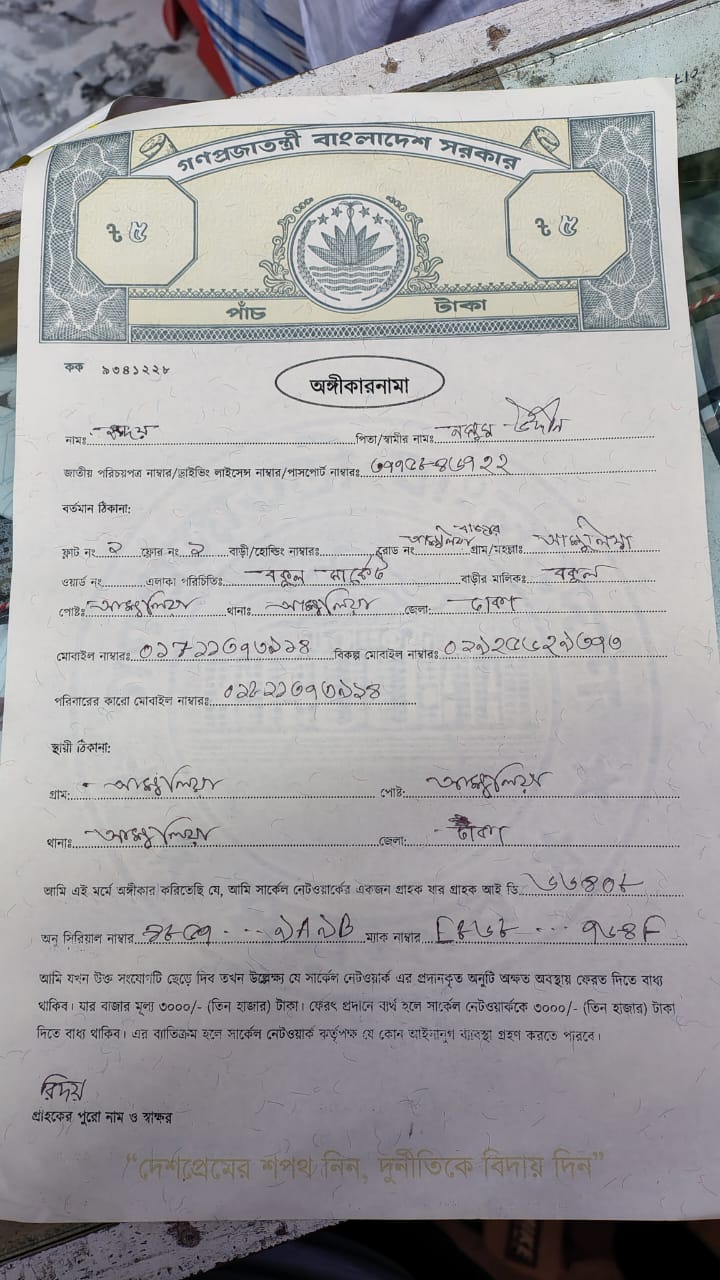 গণপ্রজাতন্ত্রী বাংলাদেশ সরকার
৳ ৫ ৳ ৫
পাঁচ টাকা
কক ৯৩৪১২২৮
অঙ্গীকারনামা
নামঃ হৃদয় পিতা/স্বামীর নামঃ উদ্দীন
জাতীয় পরিচয়পত্র নাম্বার/ড্রাইভিং লাইসেন্স নাম্বার/পাসপোর্ট নাম্বারঃ
বর্তমান ঠিকানা:
ফ্লাট নং ২ ফ্লোর নং ২ বাড়ী/হোল্ডিং নাম্বারঃ রোড নং আশুলিয়া বাজার গ্রাম/মহল্লাঃ আশুলিয়া
ওয়ার্ড নং এলাকা পরিচিতিঃ বকুল মার্কেট বাড়ীর মালিকঃ বকুল
পোষ্টঃ আশুলিয়া থানাঃ আশুলিয়া জেলা: ঢাকা
মোবাইল নাম্বারঃ বিকল্প মোবাইল নাম্বারঃ
পরিবারের কারো মোবাইল নাম্বারঃ
স্থায়ী ঠিকানা:
গ্রাম: আশুলিয়া পোষ্ট: আশুলিয়া
থানাঃ আশুলিয়া জেলা: ঢাকা
আমি এই মর্মে অঙ্গীকার করিতেছি যে, আমি সার্কেল নেটওয়ার্কের একজন গ্রাহক যার গ্রাহক আই ডি ৬৬৪০৮
অনু সিরিয়াল নাম্বার ম্যাক নাম্বার
আমি যখন উক্ত সংযোগটি ছেড়ে দিব তখন উল্লেক্ষ্য যে সার্কেল নেটওয়ার্ক এর প্রদানকৃত অনুটি অক্ষত অবস্থায় ফেরত দিতে বাধ্য
থাকিব। যার বাজার মূল্য ৩০০০/- (তিন হাজার) টাকা। ফেরৎ প্রদানে ব্যর্থ হলে সার্কেল নেটওয়ার্ককে ৩০০০/- (তিন হাজার) টাকা
দিতে বাধ্য থাকিব। এর ব্যতিক্রম হলে সার্কেল নেটওয়ার্ক কর্তৃপক্ষ যে কোন আইনানুগ ব্যবস্থা গ্রহণ করতে পারবে।
রিদয়
গ্রাহকের পুরো নাম ও স্বাক্ষর
“দেশপ্রেমের শপথ নিন, দুর্নীতিকে বিদায় দিন”